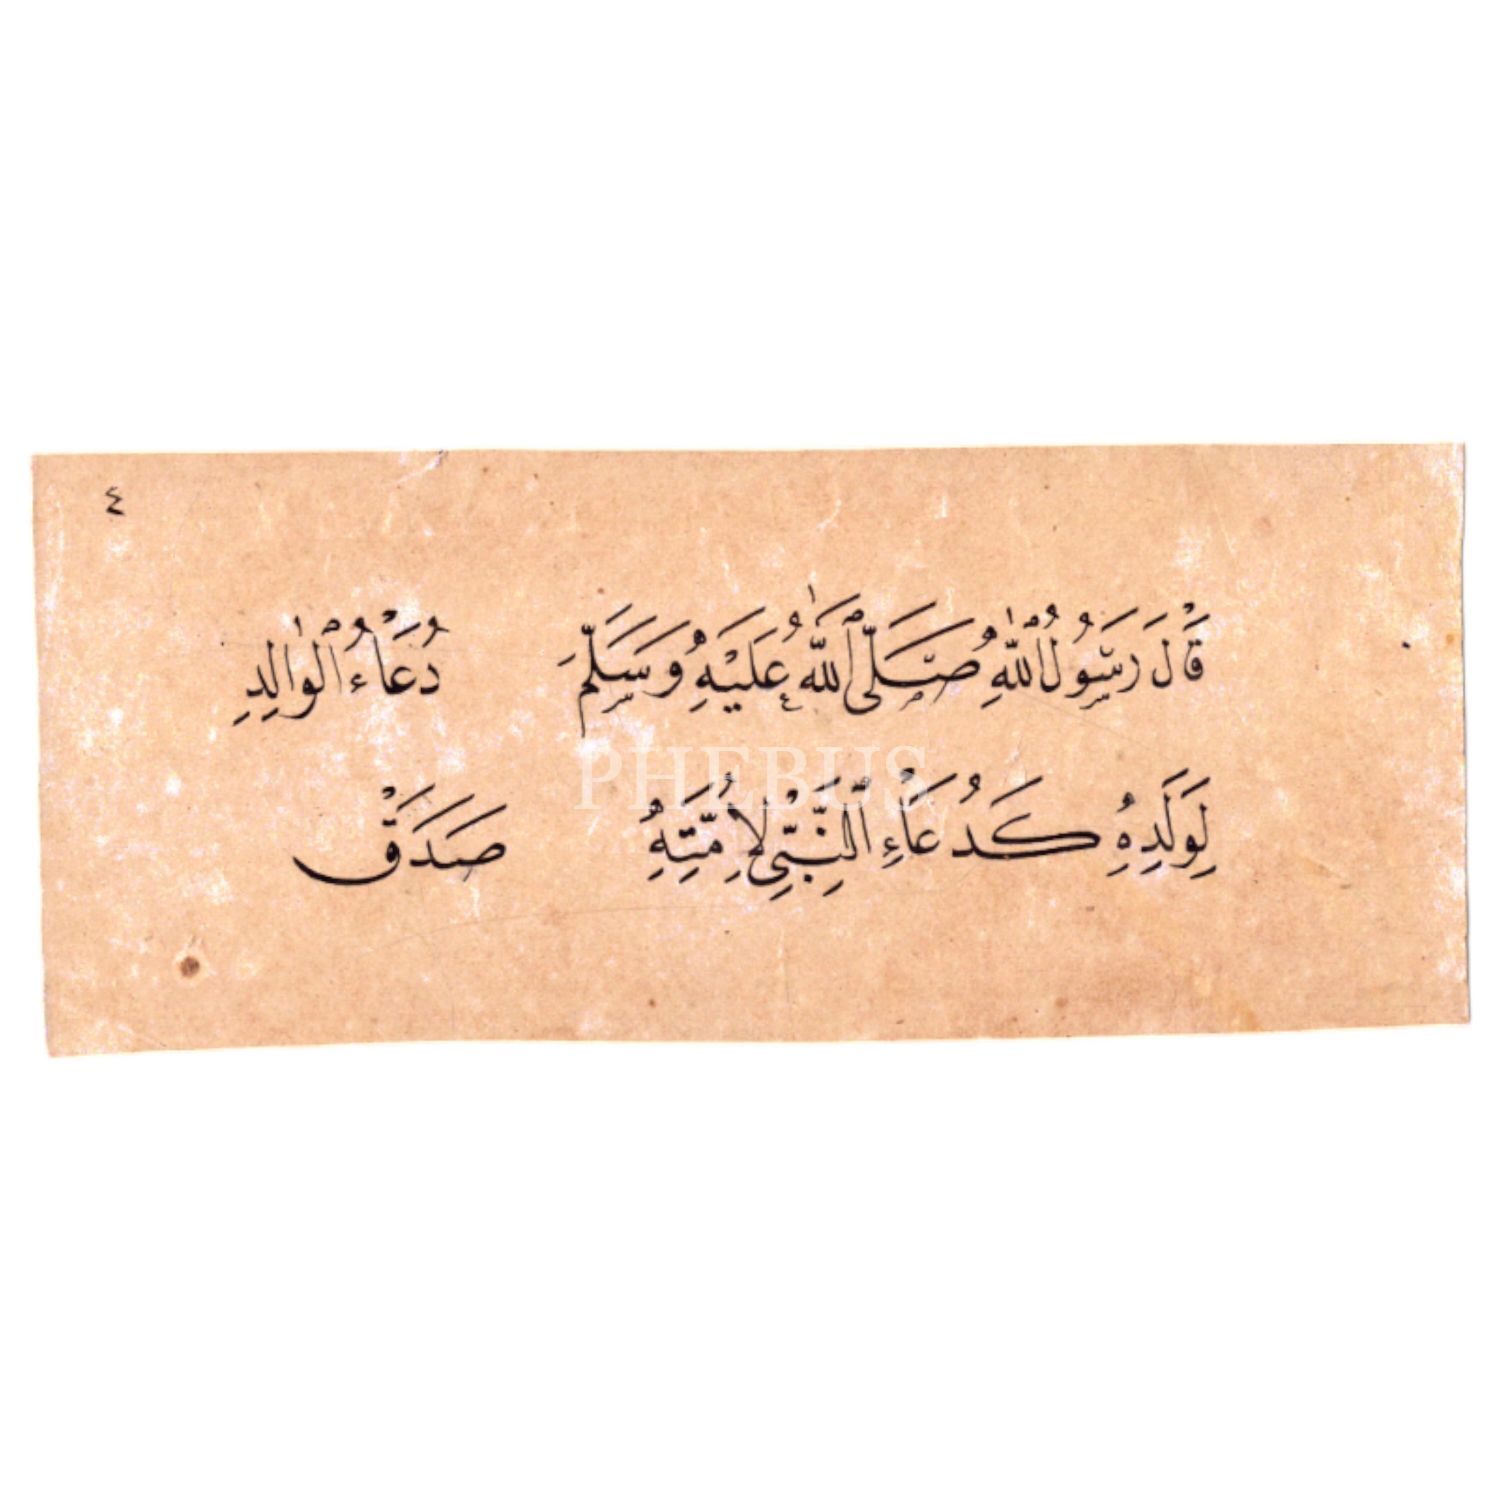 ٤
قَالَ رَسُولُ اللّٰهِ صَلَّى اللّٰهُ عَلَيْهِ وَسَلَّمَ دُعَاءُ الْوَالِدِ
لِوَلَدِهِ كَدُعَاءِ النَّبِيِّ لِأُمَّتِهِ صَدَقَ
PHEBUS